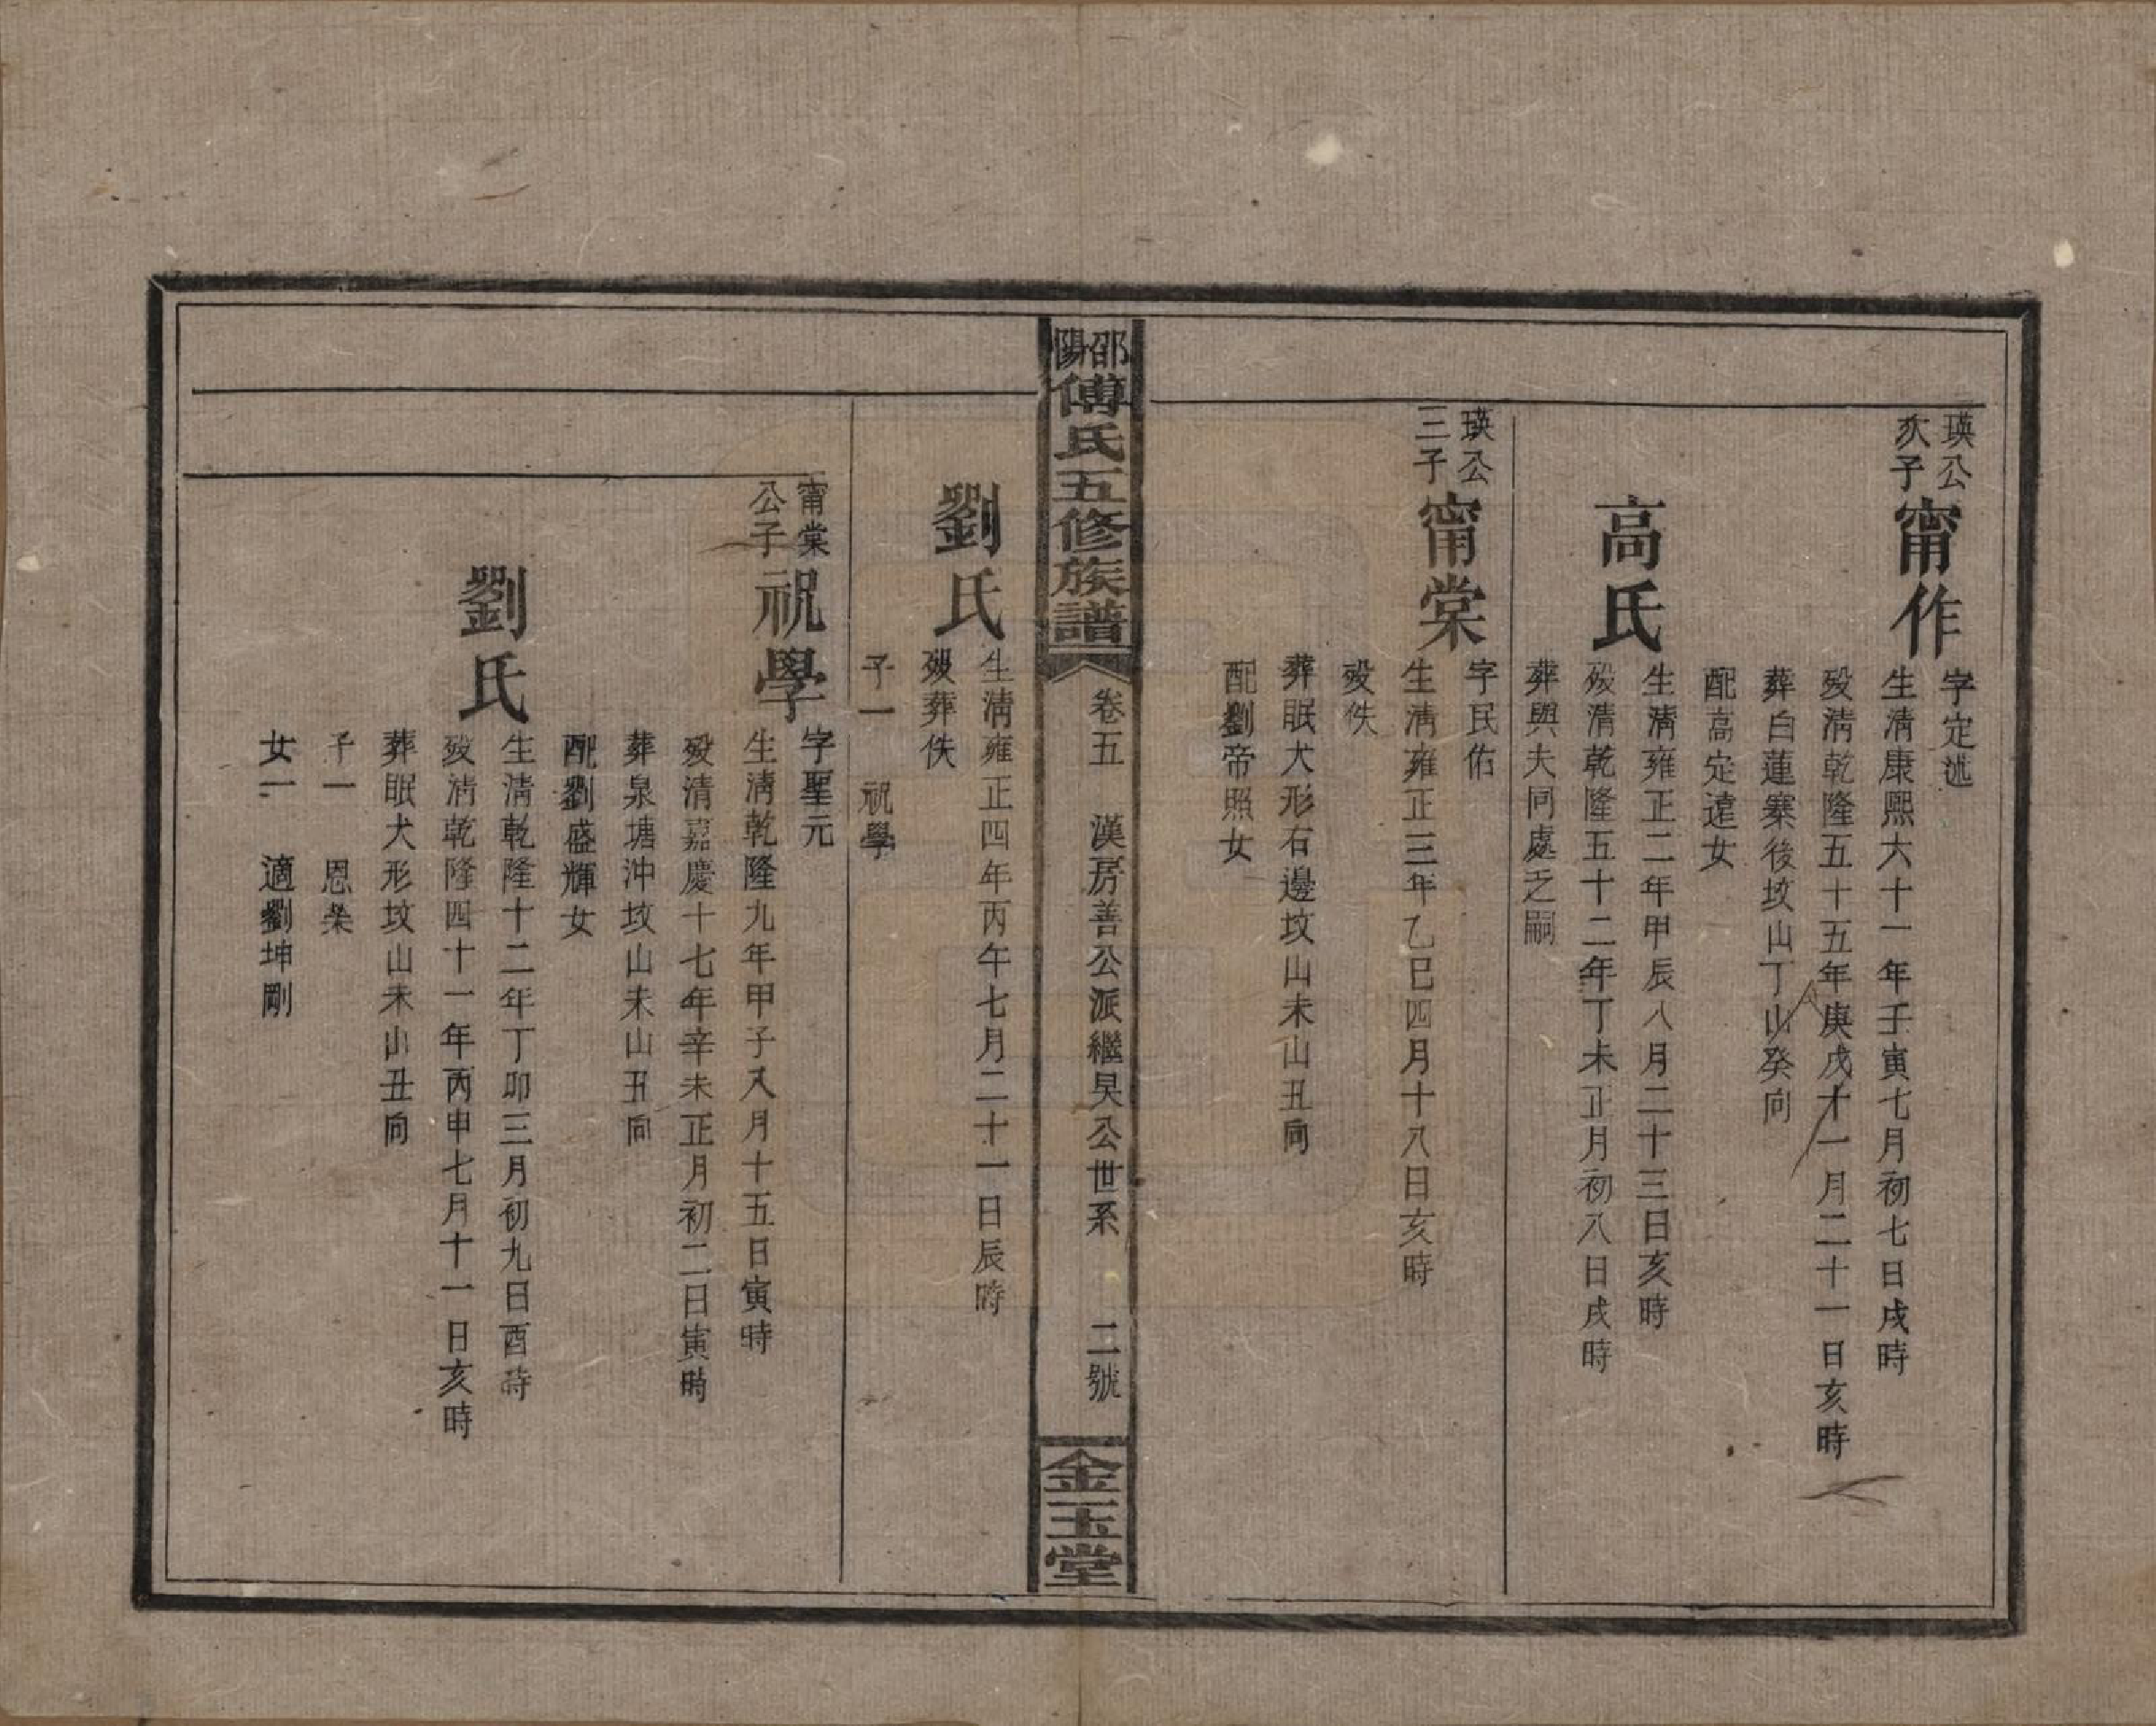 瑛公次子
甯作
字定迯
生清康熙六十一年壬寅七月初七日戌時
殁清乾隆五十五年庚戌十一月二十一日亥時
葬白蓮寨後坟山丁山癸向
配高定遠女
高氏
生清雍正二年甲辰八月二十三日亥時
殁清乾隆五十二年丁未正月初八日戌時
葬與夫同處乏嗣
瑛公三子
甯棠
字民佑
生清雍正三年乙巳四月十八日亥時
殁佚
葬眠犬形石邊坟山未山丑向
配劉帝照女
邵陽傅氏五修族譜
卷五 漢房善公派繼昊公世系 二號
金玉堂
劉氏
生清雍正四年丙午七月二十一日辰時
殁葬佚
子一 祝學
甯棠公子
祝學
字聖元
生清乾隆九年甲子八月十五日寅時
殁清嘉慶十七年辛未正月初二日寅時
葬泉塘沖坟山未山丑向
配劉盛輝女
劉氏
生清乾隆十二年丁卯三月初九日酉時
殁清乾隆四十一年丙申七月十一日亥時
葬眠犬形坟山未山丑向
子一 恩榮
女一 適劉坤剛